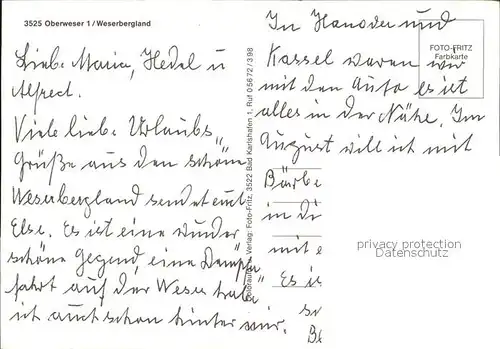 3525 Oberweser 1 / Weserbergland
Liebe Maria, Hedel u
Alfred.
Viele liebe Urlaubs
Grüße aus den schönen
Weserbergland sendet euch
Else. Es ist eine wunder
schöne Gegend, eine Dampfer
fahrt auf der Weser habe
ich auch schon hinter mir.
In Hanover und
Kassel waren wir
mit den Auto es ist
alles in der Nähe. Im
August will ich mit
Bärbe
in di
mit e
Es is
so
Bä
FOTO-FRITZ
Farbkarte
Verlag: Foto-Fritz, 3522 Bad Karlshafen 1, Ruf 05672/398
privacy protection
Datenschutz